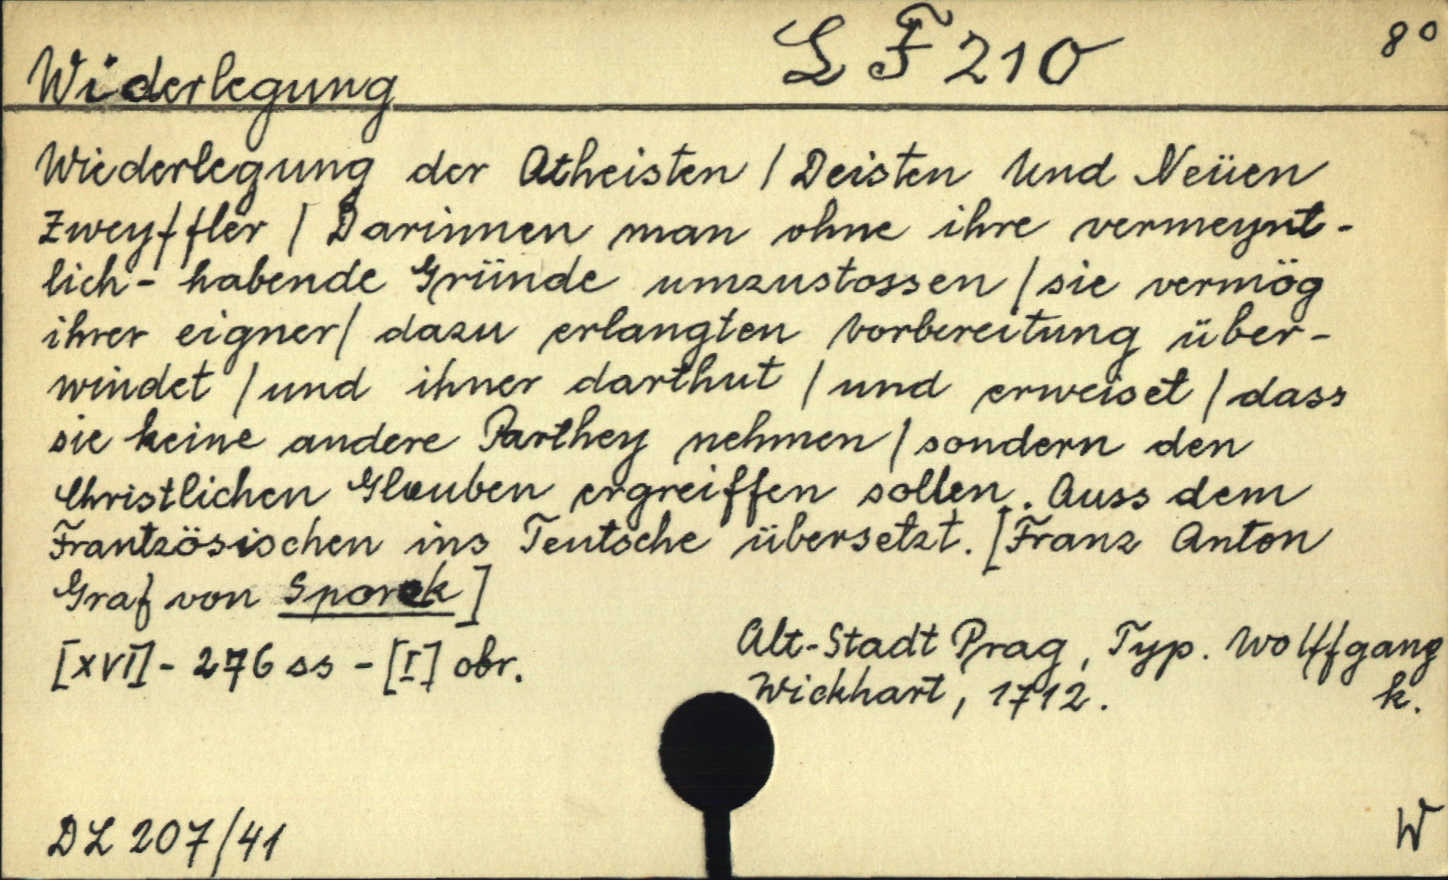 L F 210
8°
Widerlegung
Wiederlegung der Atheisten / Deisten Und Neüen
Zweyffler / Darinnen man ohne ihre vermeynt-
lich- habende Gründe umzustossen / sie vermög
ihrer eigner / dazu erlangten Vorbereitung über-
windet / und ihner darthut / und erweiset / dass
sie keine andere Parthey nehmen / sondern den
Christlichen Glauben ergreiffen sollen. Auss dem
Frantzösischen ins Teutsche übersetzt. [Franz Anton
Graf von Sporck]
[XVI] - 276 ss - [I] obr.
Alt-Stadt Prag, Typ. Wolffgang
Wickhart, 1712.
k.
DL 207/41
W